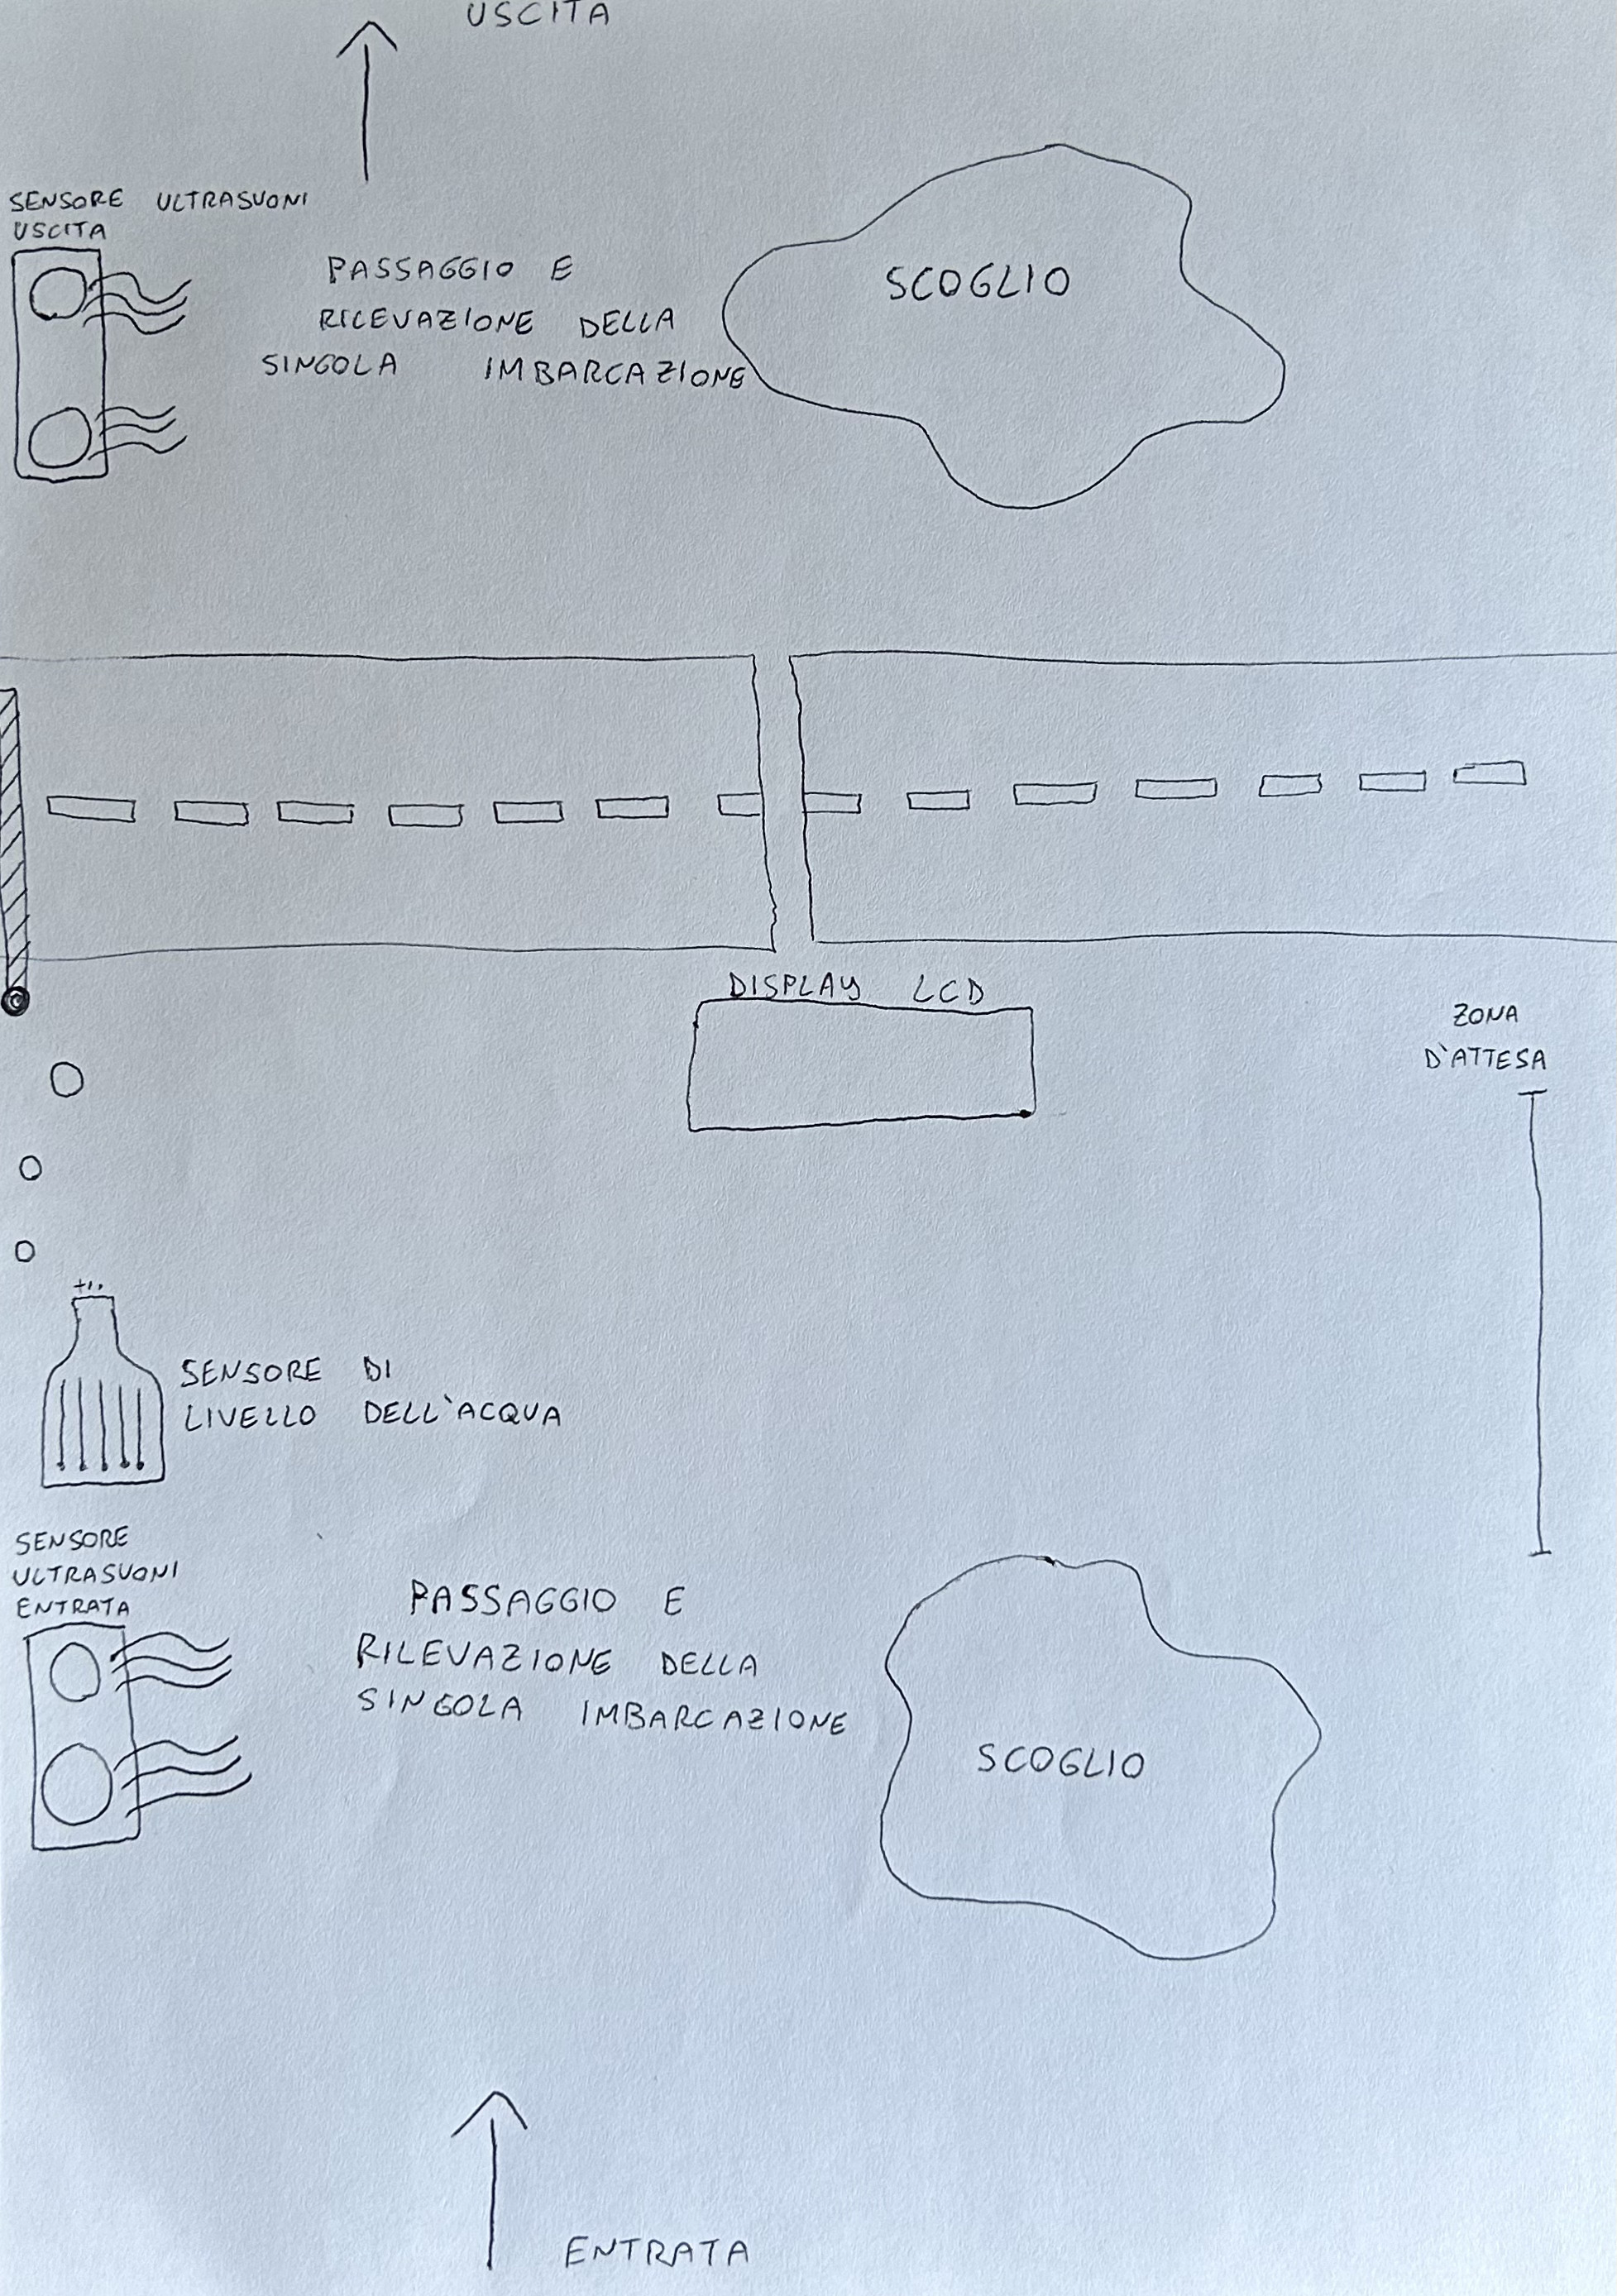 USCITA
SENSORE ULTRASUONI
USCITA
PASSAGGIO E
RILEVAZIONE DELLA
SINGOLA IMBARCAZIONE
SCOGLIO
DISPLAY LCD
ZONA
D'ATTESA
SENSORE DI
LIVELLO DELL'ACQUA
SENSORE
ULTRASUONI
ENTRATA
PASSAGGIO E
RILEVAZIONE DELLA
SINGOLA IMBARCAZIONE
SCOGLIO
ENTRATA